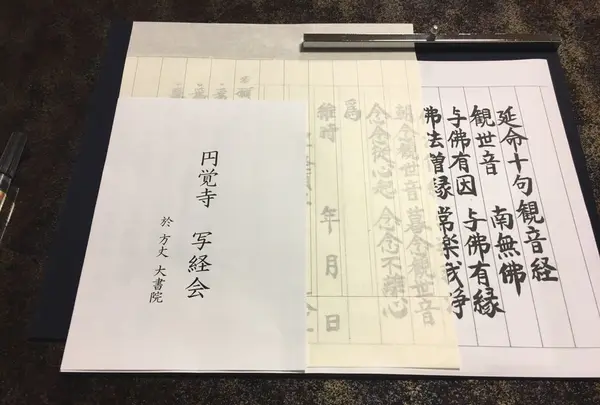 延命十句観音経
観世音 南無佛
与佛有因 与佛有縁
佛法僧縁 常楽我浄
朝念観世音 暮念観世音
念念從心起 念念不離心
爲
維時 年 月 日
円覚寺 写経会
於 方丈 大書院